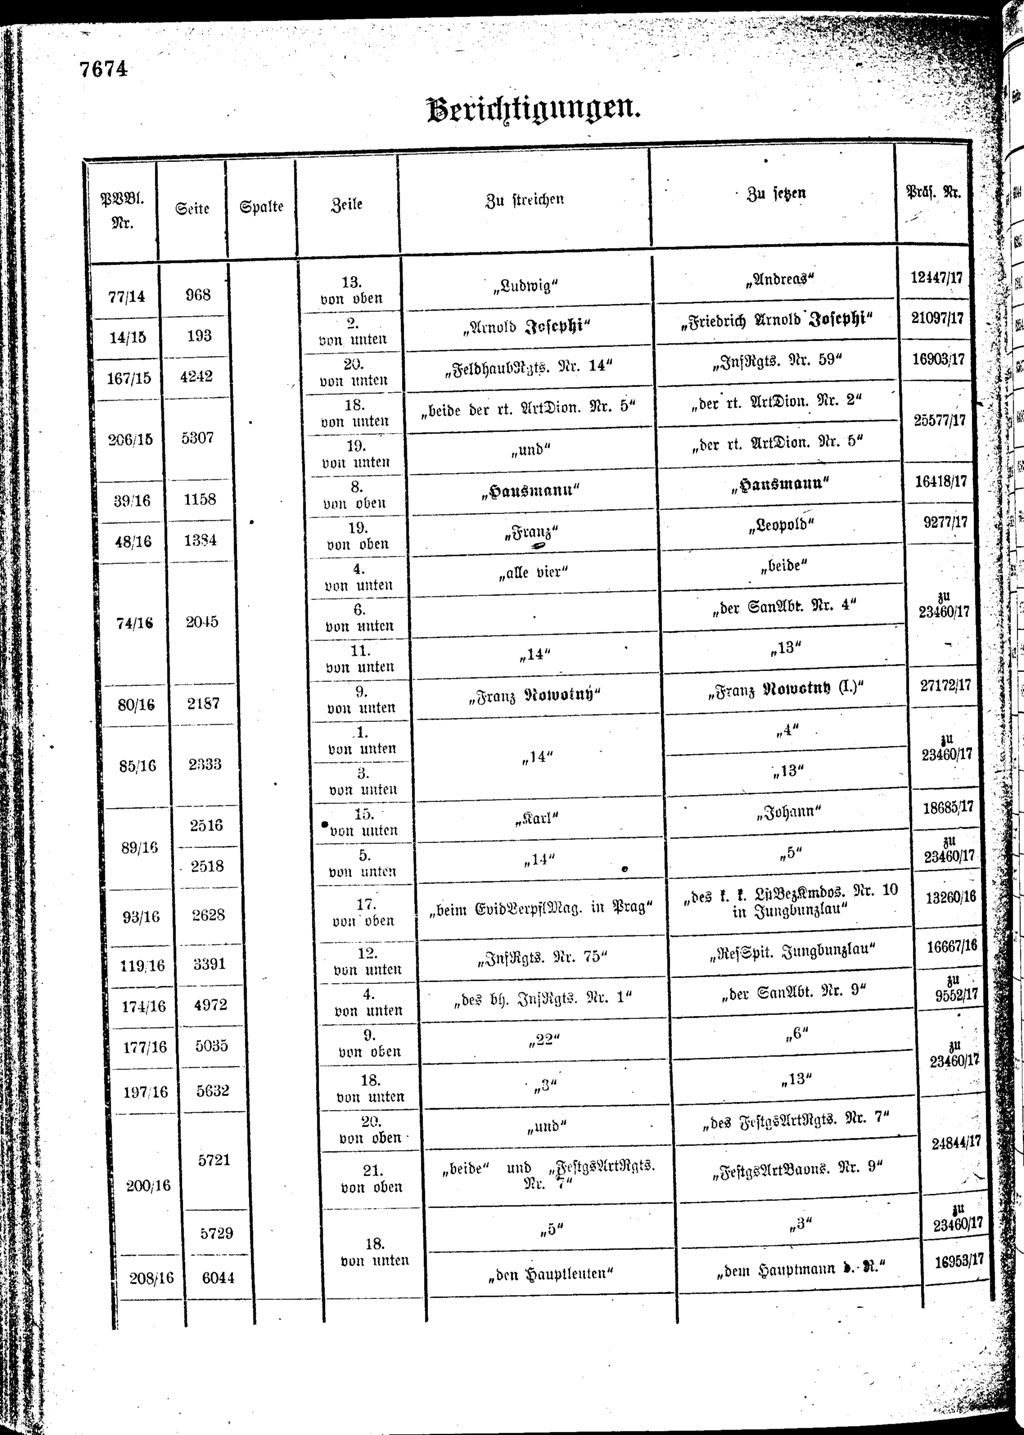 7674
Berichtigungen.
PVBl. Nr. Seite Spalte Zeile Zu streichen Zu setzen Präs. Nr.
77/14 968 13. von oben „Ludwig“ „Andreas“ 12447/17
14/15 193 2. von unten „Arnold Josephi“ „Friedrich Arnold Josephi“ 21097/17
167/15 4242 20. von unten „FeldhaubRgts. Nr. 14“ „InfRgts. Nr. 59“ 16903/17
206/15 5307 18. von unten „beide der rt. ArtDion. Nr. 5“ „der rt. ArtDion. Nr. 2“ 25577/17
19. von unten „und“ „der rt. ArtDion. Nr. 5“
39/16 1158 8. von oben „Hausmann“ „Hansmann“ 16418/17
48/16 1384 19. von oben „Franz“ „Leopold“ 9277/17
74/16 2045 4. von unten „alle vier“ „beide“ zu 23460/17
6. von unten „der SanAbt. Nr. 4“
11. von unten „14“ „13“
80/16 2187 9. von unten „Franz Nowotný“ „Franz Nowotny (I.)“ 27172/17
85/16 2333 1. von unten „14“ „4“ zu 23460/17
3. von unten „13“
89/16 2516 15. von unten „Karl“ „Johann“ 18685/17
2518 5. von unten „14“ „5“ zu 23460/17
93/16 2628 17. von oben „beim EvidVerpflMag. in Prag“ „des k. k. LstBezKmdos. Nr. 10 in Jungbunzlau“ 13260/16
119/16 3391 12. von unten „InfRgts. Nr. 75“ „ResSpit. Jungbunzlau“ 16667/16
174/16 4972 4. von unten „des bh. InfRgts. Nr. 1“ „der SanAbt. Nr. 9“ zu 9552/17
177/16 5035 9. von oben „22“ „6“ zu 23460/17
197/16 5632 18. von unten „3“ „13“
200/16 5721 20. von oben „und“ „des FestgsArtRgts. Nr. 7“ 24844/17
21. von oben „beide“ und „FestgsArtRgts. Nr. 7“ „FestgsArtBaons. Nr. 9“
5729 18. von unten „5“ „3“ zu 23460/17
208/16 6044 „den Hauptleuten“ „dem Hauptmann d. R.“ 16953/17